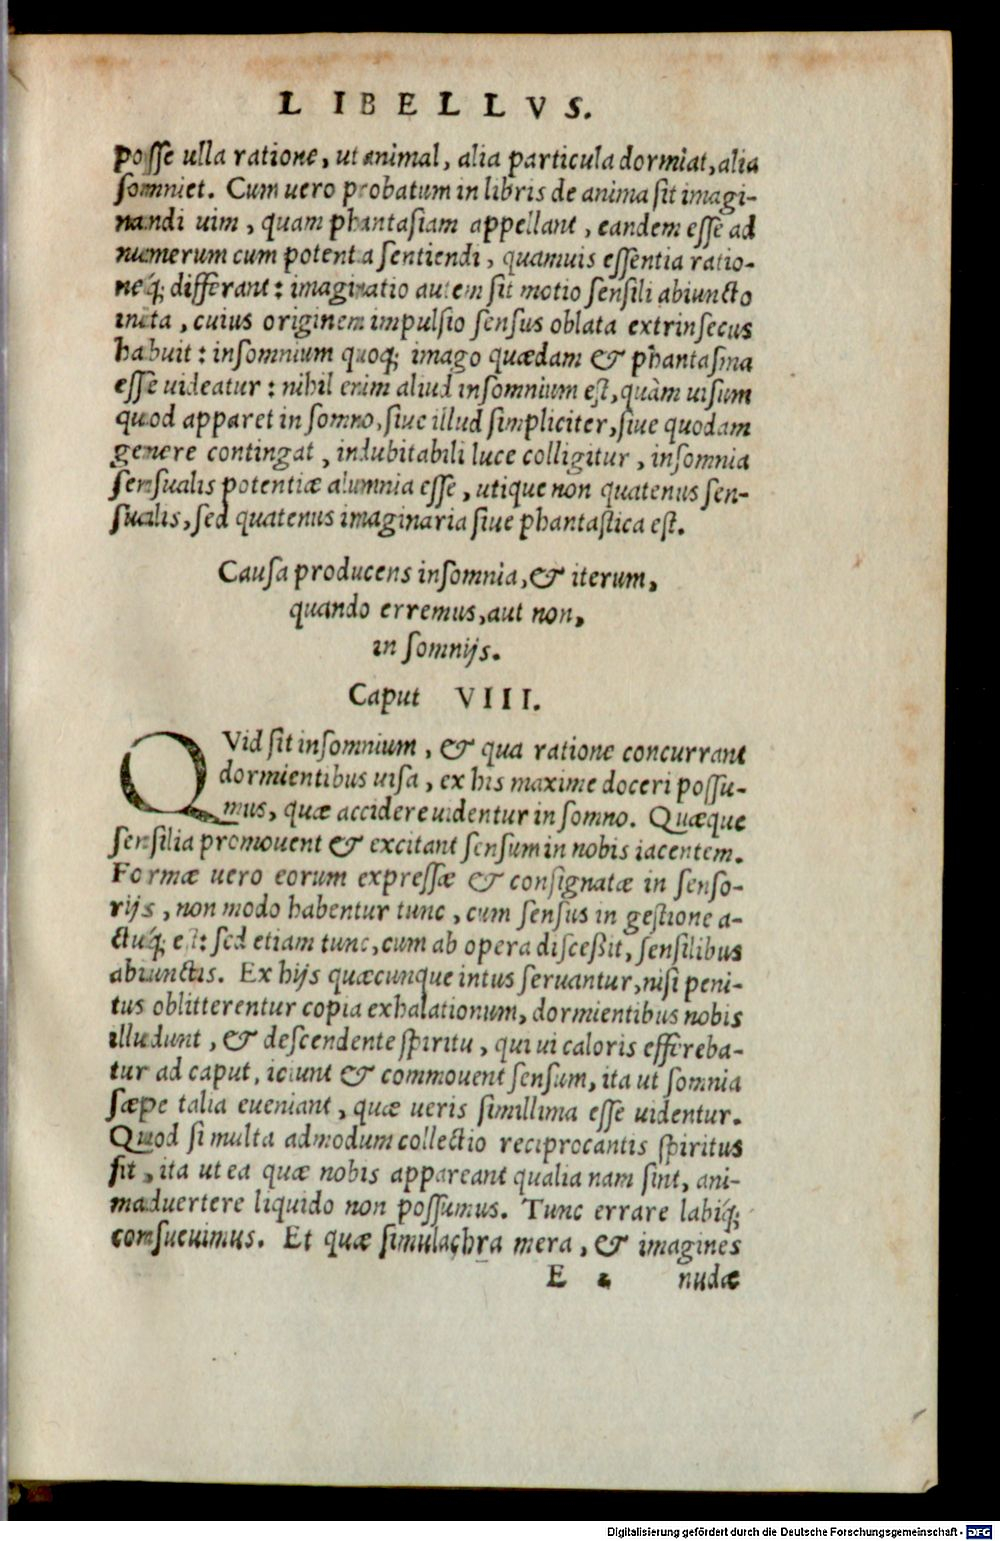 LIBELLVS.
posse ulla ratione, ut animal, alia particula dormiat, alia
somniet. Cum uero probatum in libris de anima sit imagi-
nandi uim, quam phantasiam appellant, eandem esse ad
numerum cum potentia sentiendi, quamuis essentia ratio-
neq́; differant: imaginatio autem sit motio sensili abiuncto
inita, cuius originem impulsio sensus oblata extrinsecus
habuit: insomnium quoq; imago quædam & phantasma
esse uideatur: nihil enim aliud insomnium est, quàm uisum
quod apparet in somno, siue illud simpliciter, siue quodam
genere contingat, indubitabili luce colligitur, insomnia
sensualis potentiæ alumnia esse, utique non quatenus sen-
sualis, sed quatenus imaginaria siue phantastica est.
Causa producens insomnia, & iterum,
quando erremus, aut non,
in somnijs.
Caput VIII.
QVid sit insomnium, & qua ratione concurrant
dormientibus uisa, ex his maxime doceri possu-
mus, quæ accidere uidentur in somno. Quæque
sensilia promouent & excitant sensum in nobis iacentem.
Formæ uero eorum expressæ & consignatæ in senso-
rijs, non modo habentur tunc, cum sensus in gestione a-
ctuq́; est: sed etiam tunc, cum ab opera discessit, sensilibus
abiunctis. Ex hijs quæcunque intus seruantur, nisi peni-
tus oblitterentur copia exhalationum, dormientibus nobis
illudunt, & descendente spiritu, qui ui caloris effereba-
tur ad caput, icunt & commouent sensum, ita ut somnia
sæpe talia eueniant, quæ ueris simillima esse uidentur.
Quod si multa admodum collectio reciprocantis spiritus
sit, ita ut ea quæ nobis appareant qualia nam sint, ani-
maduertere liquido non possumus. Tunc errare labiq́;
consueuimus. Et quæ simulachra mera, & imagines
E 2 nudæ
Digitalisierung gefördert durch die Deutsche Forschungsgemeinschaft - DFG